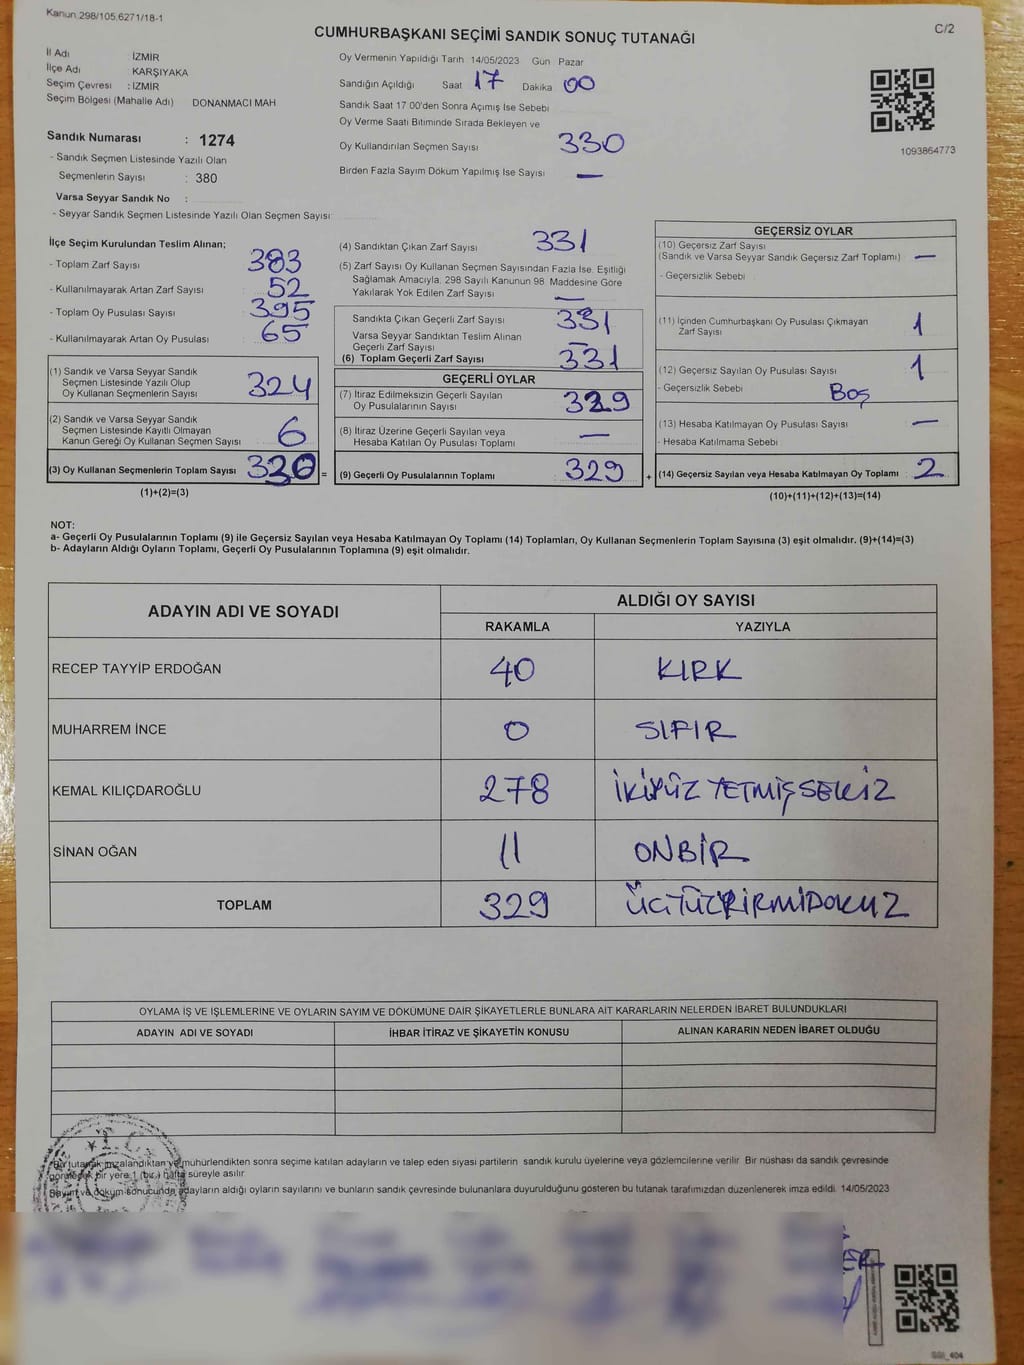 Kanun.298/105,6271/18-1
C/2
CUMHURBAŞKANI SEÇİMİ SANDIK SONUÇ TUTANAĞI
İl Adı : İZMİR
İlçe Adı : KARŞIYAKA
Seçim Çevresi : İZMİR
Seçim Bölgesi (Mahalle Adı) DONANMACI MAH
Sandık Numarası : 1274
- Sandık Seçmen Listesinde Yazılı Olan
Seçmenlerin Sayısı : 380
Varsa Seyyar Sandık No :
- Seyyar Sandık Seçmen Listesinde Yazılı Olan Seçmen Sayısı:
Oy Vermenin Yapıldığı Tarih 14/05/2023 Gün Pazar
Sandığın Açıldığı Saat 17 Dakika 00
Sandık Saat 17 00'den Sonra Açımış İse Sebebi
Oy Verme Saati Bitiminde Sırada Bekleyen ve
Oy Kullandırılan Seçmen Sayısı 330
Birden Fazla Sayım Döküm Yapılmış İse Sayısı —
1093864773
İlçe Seçim Kurulundan Teslim Alınan;
- Toplam Zarf Sayısı : 383
- Kullanılmayarak Artan Zarf Sayısı : 52
- Toplam Oy Pusulası Sayısı : 395
- Kullanılmayarak Artan Oy Pusulası : 65
(1) Sandık ve Varsa Seyyar Sandık
Seçmen Listesinde Yazılı Olup
Oy Kullanan Seçmenlerin Sayısı 324
(2) Sandık ve Varsa Seyyar Sandık
Seçmen Listesinde Kayıtlı Olmayan
Kanun Gereği Oy Kullanan Seçmen Sayısı 6
(3) Oy Kullanan Seçmenlerin Toplam Sayısı 330 =
(1)+(2)=(3)
(4) Sandıktan Çıkan Zarf Sayısı 331
(5) Zarf Sayısı Oy Kullanan Seçmen Sayısından Fazla İse. Eşitliği
Sağlamak Amacıyla; 298 Sayılı Kanunun 98. Maddesine Göre
Yakılarak Yok Edilen Zarf Sayısı —
Sandıkta Çıkan Geçerli Zarf Sayısı 331
Varsa Seyyar Sandıktan Teslim Alınan
Geçerli Zarf Sayısı —
(6) Toplam Geçerli Zarf Sayısı 331
GEÇERLİ OYLAR
(7) İtiraz Edilmeksizin Geçerli Sayılan
Oy Pusulalarının Sayısı 329
(8) İtiraz Üzerine Geçerli Sayılan veya
Hesaba Katılan Oy Pusulası Toplamı —
(9) Geçerli Oy Pusulalarının Toplamı 329 +
GEÇERSİZ OYLAR
(10) Geçersiz Zarf Sayısı
(Sandık ve Varsa Seyyar Sandık Geçersiz Zarf Toplamı) —
- Geçersizlik Sebebi
(11) İçinden Cumhurbaşkanı Oy Pusulası Çıkmayan
Zarf Sayısı 1
(12) Geçersiz Sayılan Oy Pusulası Sayısı 1
- Geçersizlik Sebebi Boş
(13) Hesaba Katılmayan Oy Pusulası Sayısı —
- Hesaba Katılmama Sebebi
(14) Geçersiz Sayılan veya Hesaba Katılmayan Oy Toplamı : 2
(10)+(11)+(12)+(13)=(14)
NOT:
a- Geçerli Oy Pusulalarının Toplamı (9) ile Geçersiz Sayılan veya Hesaba Katılmayan Oy Toplamı (14) Toplamları, Oy Kullanan Seçmenlerin Toplam Sayısına (3) eşit olmalıdır. (9)+(14)=(3)
b- Adayların Aldığı Oyların Toplamı, Geçerli Oy Pusulalarının Toplamına (9) eşit olmalıdır.
ADAYIN ADI VE SOYADI ALDIĞI OY SAYISI
RAKAMLA YAZIYLA
RECEP TAYYİP ERDOĞAN 40 KIRK
MUHARREM İNCE 0 SIFIR
KEMAL KILIÇDAROĞLU 278 İKİYÜZ YETMİŞSEKİZ
SİNAN OĞAN 11 ONBİR
TOPLAM 329 ÜÇYÜZYİRMİDOKUZ
OYLAMA İŞ VE İŞLEMLERİNE VE OYLARIN SAYIM VE DÖKÜMÜNE DAİR ŞİKAYETLERLE BUNLARA AİT KARARLARIN NELERDEN İBARET BULUNDUKLARI
ADAYIN ADI VE SOYADI İHBAR İTİRAZ VE ŞİKAYETİN KONUSU ALINAN KARARIN NEDEN İBARET OLDUĞU
T.C.
Bu tutanak imzalandıktan ve mühürlendikten sonra seçime katılan adayların ve talep eden siyasi partilerin sandık kurulu üyelerine veya gözlemcilerine verilir. Bir nüshası da sandık çevresinde
görülecek bir yere 1 (bir) hafta süreyle asılır.
Sayım ve döküm sonucunda adayların aldığı oyların sayılarını ve bunların sandık çevresinde bulunanlara duyurulduğunu gösteren bu tutanak tarafımızdan düzenlenerek imza edildi. 14/05/2023